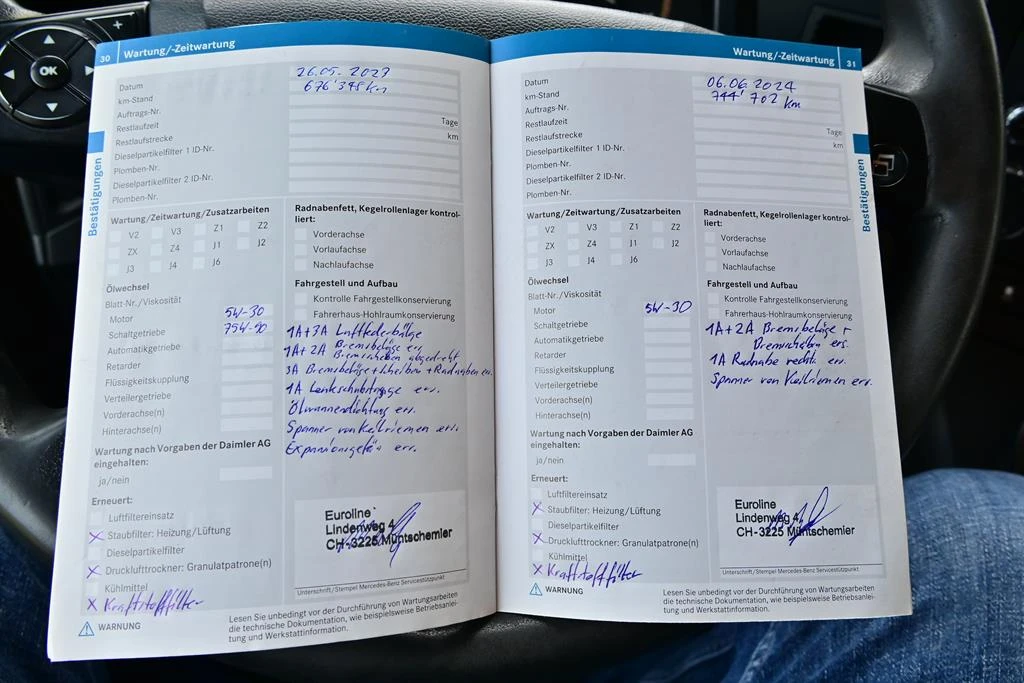 OK
+
30 Wartung/-Zeitwartung
Datum 26.05.2023
km-Stand 676'345 km
Auftrags-Nr.
Restlaufzeit Tage
Restlaufstrecke km
Dieselpartikelfilter 1 ID-Nr.
Plomben-Nr.
Dieselpartikelfilter 2 ID-Nr.
Plomben-Nr.
Bestätigungen
Wartung/Zeitwartung/Zusatzarbeiten
V2 V3 Z1 Z2
ZX Z4 J1 J2
J3 J4 J6
Ölwechsel
Blatt-Nr./Viskosität
Motor 5W-30
Schaltgetriebe 75W-90
Automatikgetriebe
Retarder
Flüssigkeitskupplung
Verteilergetriebe
Vorderachse(n)
Hinterachse(n)
Wartung nach Vorgaben der Daimler AG
eingehalten:
ja/nein
Erneuert:
Luftfiltereinsatz
X Staubfilter: Heizung/Lüftung
Dieselpartikelfilter
X Drucklufttrockner: Granulatpatrone(n)
Kühlmittel
X Kraftstoffilter
WARNUNG
Radnabenfett, Kegelrollenlager kontrol-
liert:
Vorderachse
Vorlaufachse
Nachlaufachse
Fahrgestell und Aufbau
Kontrolle Fahrgestellkonservierung
Fahrerhaus-Hohlraumkonservierung
1A+3A Luftfederbälge
1A+2A Bremsbeläge ers.
Bremsscheiben abgedreht
3A Bremsbeläge + Scheiben + Radnaben er.
1A Lenkschubstange ers.
Ölwannendichtung ers.
Spanner von Keilriemen ers.
Expansionsgefäss err.
Euroline
Lindenweg 4
CH-3225 Müntschemier
Unterschrift/Stempel Mercedes-Benz Servicestützpunkt
Lesen Sie unbedingt vor der Durchführung von Wartungsarbeiten
die technische Dokumentation, wie beispielsweise Betriebsanlei-
tung und Werkstattinformation.
Wartung/-Zeitwartung 31
Datum 06.06.2024
km-Stand 744'702 km
Auftrags-Nr.
Restlaufzeit Tage
Restlaufstrecke km
Dieselpartikelfilter 1 ID-Nr.
Plomben-Nr.
Dieselpartikelfilter 2 ID-Nr.
Plomben-Nr.
Bestätigungen
Wartung/Zeitwartung/Zusatzarbeiten
V2 V3 Z1 Z2
ZX Z4 J1 J2
J3 J4 J6
Ölwechsel
Blatt-Nr./Viskosität
Motor 5W-30
Schaltgetriebe
Automatikgetriebe
Retarder
Flüssigkeitskupplung
Verteilergetriebe
Vorderachse(n)
Hinterachse(n)
Wartung nach Vorgaben der Daimler AG
eingehalten:
ja/nein
Erneuert:
Luftfiltereinsatz
X Staubfilter: Heizung/Lüftung
Dieselpartikelfilter
X Drucklufttrockner: Granulatpatrone(n)
Kühlmittel
X Kraftstoffilter
WARNUNG
Radnabenfett, Kegelrollenlager kontrol-
liert:
Vorderachse
Vorlaufachse
Nachlaufachse
Fahrgestell und Aufbau
Kontrolle Fahrgestellkonservierung
Fahrerhaus-Hohlraumkonservierung
1A+2A Bremsbeläge +
Bremsscheiben ers.
1A Radnabe rechts err.
Spanner von Keilriemen err.
Euroline
Lindenweg 4
CH-3225 Müntschemier
Unterschrift/Stempel Mercedes-Benz Servicestützpunkt
Lesen Sie unbedingt vor der Durchführung von Wartungsarbeiten
die technische Dokumentation, wie beispielsweise Betriebsanlei-
tung und Werkstattinformation.